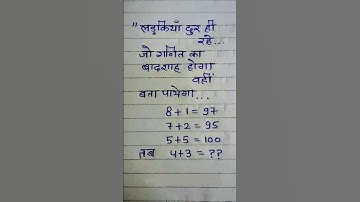 "लड़कियाँ दुर ही
रहे...
जो गनित का
बादशाह होगा
वहीं
बता पायेगा...
8+1=97
7+2=95
5+5=100
तब 4+3=??